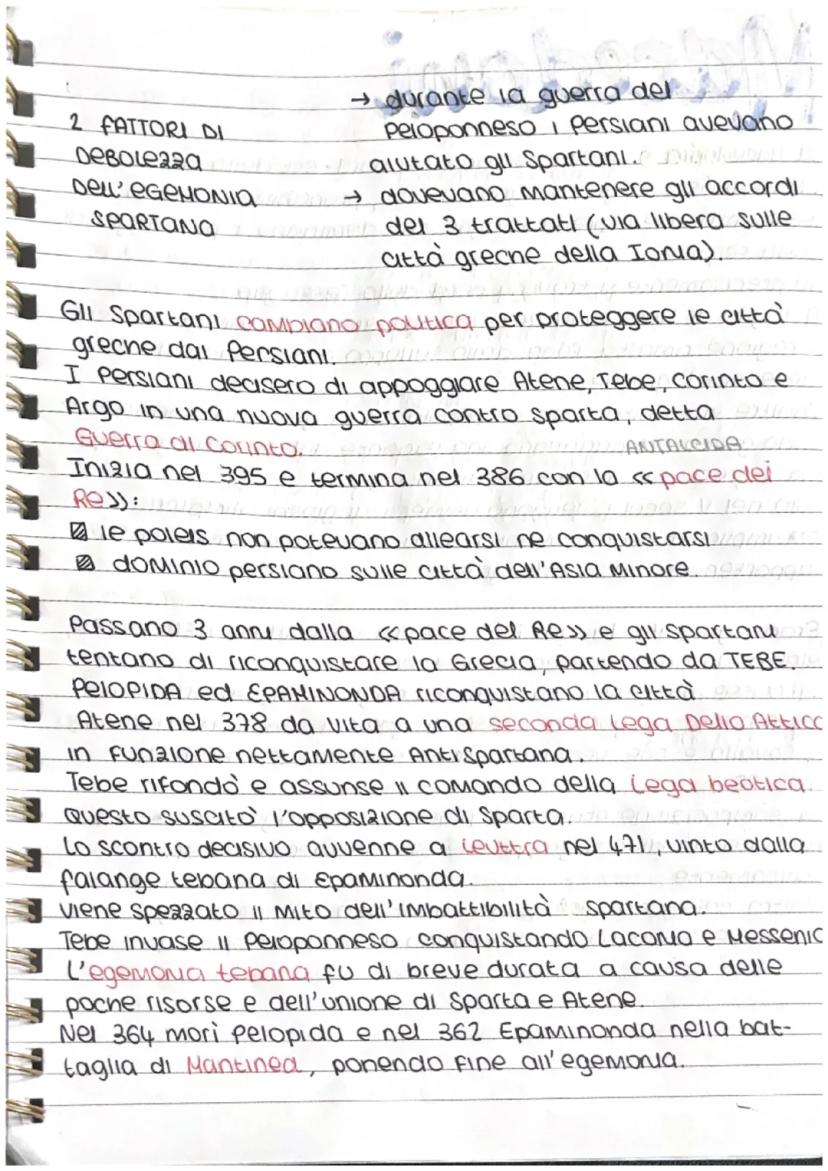 → durante la guerra del
2 FATTORI DI
Peloponneso i Persiani avevano
DEBOLEZZA
aiutato gli Spartani.
DELL'EGEMONIA
→ dovevano mantenere gli accordi
SPARTANA
dei 3 trattati (via libera sulle
città greche della Ionia).
Gli Spartani cambiano politica per proteggere le città
greche dai Persiani.
I Persiani decisero di appoggiare Atene, Tebe, Corinto e
Argo in una nuova guerra contro Sparta, detta
Guerra di Corinto.
ANTALCIDA
Inizia nel 395 e termina nel 386 con la «pace dei
Re»:
le poleis non potevano allearsi ne conquistarsi
dominio persiano sulle città dell'Asia Minore.
Passano 3 anni dalla «pace del Re» e gli Spartani
tentano di riconquistare la Grecia, partendo da TEBE.
PELOPIDA ed EPAMINONDA riconquistano la città.
Atene nel 378 da vita a una seconda Lega Delio Attica
in funzione nettamente AntiSpartana.
Tebe rifondò e assunse il comando della Lega beotica.
Questo suscitò l'opposizione di Sparta.
Lo scontro decisivo avvenne a Leuttra nel 471, vinto dalla
falange tebana di Epaminonda.
Viene spezzato il mito dell'imbattibilità spartana.
Tebe invase il Peloponneso conquistando Laconia e Messenia
L'egemonia tebana fu di breve durata a causa delle
poche risorse e dell'unione di Sparta e Atene.
Nel 364 morì Pelopida e nel 362 Epaminonda nella bat-
taglia di Mantinea, ponendo fine all'egemonia.